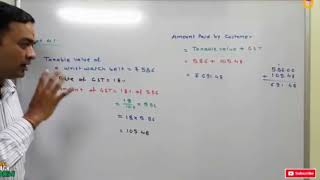 Taxable value of
a wrist watch belt = ₹ 586
Rate of GST = 18%
Amount of GST = 18% of 586
= 18/100 × 586
= 18 × 5.86
= 105.48
Amount Paid by Customer
= Taxable value + GST
= 586 + 105.48
= 691.48
586.00
+ 105.48
691.48
SUBSCRIBE